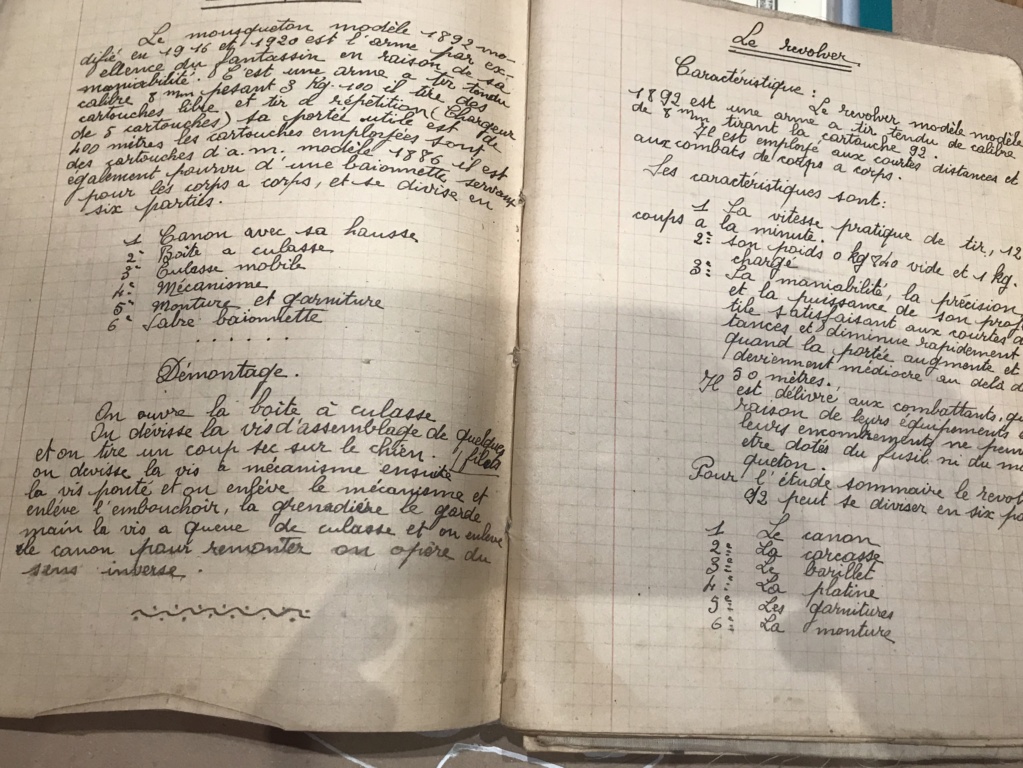 Le mousqueton modèle 1892 mo-
difié en 1916 et 1920 est l'arme par ex-
ellence du fantassin en raison de sa
maniabilité. C'est une arme a tir tendu
calibre 8 mm pesant 3 kg. 100 il tire des
cartouches libre et tir a répétition (Chargeur
de 5 cartouches) sa portée utile est de
400 mètres les cartouches employées sont
des cartouches d'a.m. modèle 1886 il est
également pourvu d'une baionnette servant
pour les corps a corps, et se divise en
six parties.
1 Canon avec sa hausse
2° Boîte a culasse
3° Culasse mobile
4° Mécanisme
5° Monture et garniture
6° Sabre baïonnette
. . . . . .
Démontage.
On ouvre la boîte à culasse
On dévisse la vis d'assemblage de quelques
et on tire un coup sec sur le chien. / filets
on devisse la vis a mécanisme ensuite
la vis ponté et on enlève le mécanisme et
enlève l'embouchoir, la grenadière le garde
main la vis a queue de culasse et on enlève
le canon pour remonter on opère du
sens inverse.
Le revolver
Caractéristique :
Le revolver modèle modèle
1892 est une arme a tir tendu de calibre
de 8 mm tirant la cartouche 92.
Il est employé aux courtes distances et
aux combats de corps a corps.
Les caractéristiques sont:
1 La vitesse pratique de tir, 12
coups a la minute.
2° son poids 0 kg 840 vide et 1 kg.
chargé
3° La maniabilité, la précision
et la puissance de son
tile satisfaisant aux courtes
tances et diminue rapidement
quand la portée augmente et
deviennent médiocre au dela
50 mètres.
Il est délivré aux combattants
raison de leurs équipements
leurs encombrements ne
etre dotés du fusil ni du
queton.
Pour l'étude sommaire le
92 peut se diviser en six
1 Le canon
2 La carcasse
3 Le barillet
4 La platine
5 Les garnitures
6 La monture